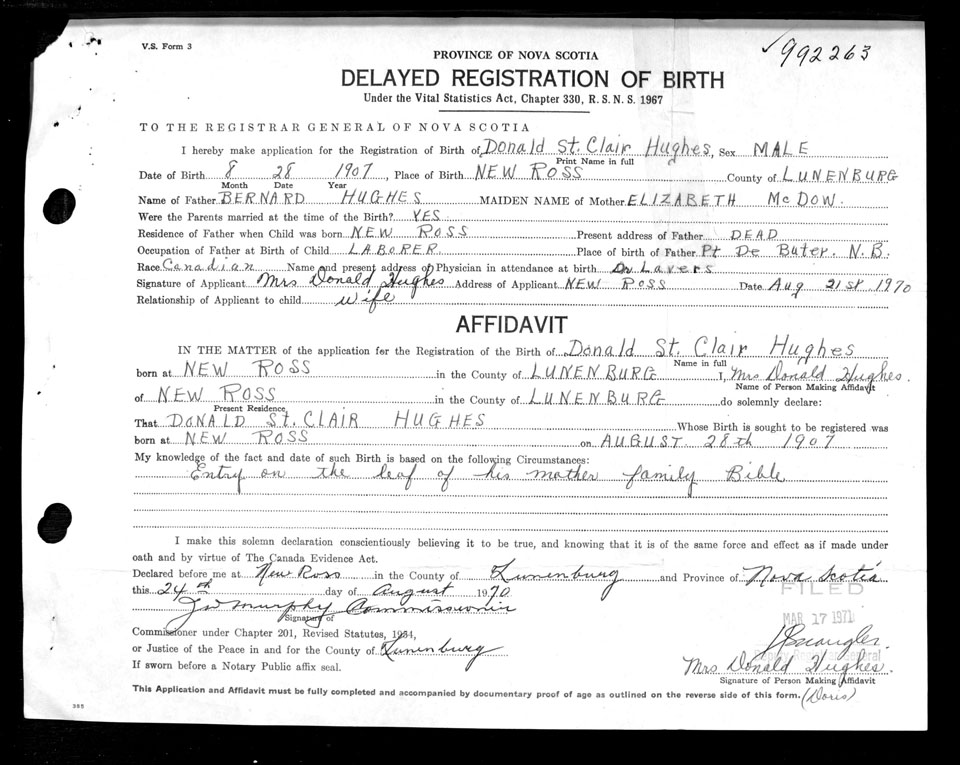 V.S. Form 3
✓992263
PROVINCE OF NOVA SCOTIA
DELAYED REGISTRATION OF BIRTH
Under the Vital Statistics Act, Chapter 330, R.S.N.S. 1967
TO THE REGISTRAR GENERAL OF NOVA SCOTIA
I hereby make application for the Registration of Birth of Donald St. Clair Hughes, Sex MALE
Print Name in full
Date of Birth 8 28 1907, Place of Birth NEW ROSS County of LUNENBURG
Month Date Year
Name of Father BERNARD HUGHES MAIDEN NAME of Mother ELIZABETH McDOW.
Were the Parents married at the time of the Birth? YES
Residence of Father when Child was born NEW ROSS Present address of Father DEAD
Occupation of Father at Birth of Child LABORER Place of birth of Father Pt De Buter. N.B.
Race Canadian Name and present address of Physician in attendance at birth Dr Lavers
Signature of Applicant Mrs Donald Hughes Address of Applicant NEW ROSS Date Aug 21st 1970
Relationship of Applicant to child wife
AFFIDAVIT
IN THE MATTER of the application for the Registration of the Birth of Donald St. Clair Hughes
Name in full
born at NEW ROSS in the County of LUNENBURG I, Mrs Donald Hughes.
Name of Person Making Affidavit
of NEW ROSS in the County of LUNENBURG do solemnly declare:
Present Residence
That DONALD St. CLAIR HUGHES Whose Birth is sought to be registered was
born at NEW ROSS on AUGUST 28th 1907
My knowledge of the fact and date of such Birth is based on the following Circumstances:
Entry on the leaf of his mother family Bible
I make this solemn declaration conscientiously believing it to be true, and knowing that it is of the same force and effect as if made under
oath and by virtue of The Canada Evidence Act.
Declared before me at New Ross in the County of Lunenburg and Province of Nova Scotia
this 24th day of August 1970
FILED
MAR 17 1971
Murphy Commissionir
Signature of
Commissioner under Chapter 201, Revised Statutes, 1954,
or Justice of the Peace in and for the County of Lunenburg
General
If sworn before a Notary Public affix seal.
Mrs Donald Hughes.
Signature of Person Making Affidavit
This Application and Affidavit must be fully completed and accompanied by documentary proof of age as outlined on the reverse side of this form.
(Doris)
395